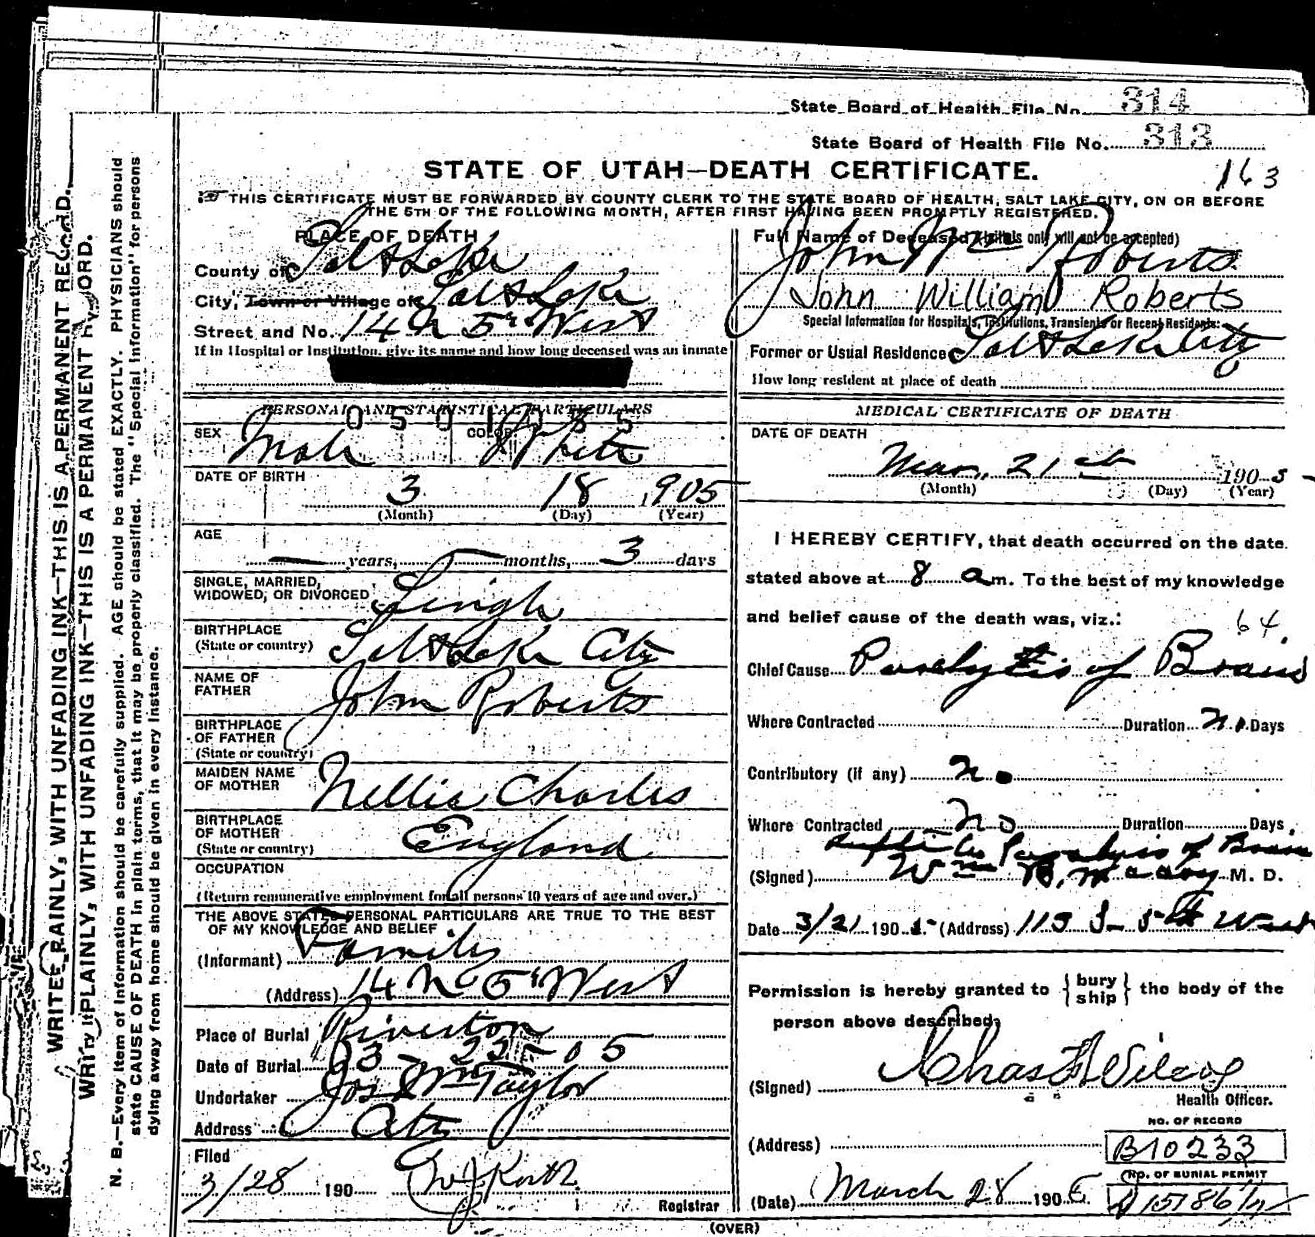 State Board of Health File No. 314
State Board of Health File No. 313
STATE OF UTAH—DEATH CERTIFICATE.
163
THIS CERTIFICATE MUST BE FORWARDED BY COUNTY CLERK TO THE STATE BOARD OF HEALTH, SALT LAKE CITY, ON OR BEFORE
THE 5TH OF THE FOLLOWING MONTH, AFTER FIRST HAVING BEEN PROMPTLY REGISTERED.
PLACE OF DEATH
County of Salt Lake
City, Town or Village of Salt Lake
Street and No. 14 N 5th West
If in Hospital or Institution, give its name and how long deceased was an inmate
PERSONAL AND STATISTICAL PARTICULARS
SEX Male COLOR White
DATE OF BIRTH
3 18 1905
(Month) (Day) (Year)
AGE
— years, — months, 3 days
SINGLE, MARRIED,
WIDOWED, OR DIVORCED Single
BIRTHPLACE
(State or country) Salt Lake City
NAME OF
FATHER John Roberts
BIRTHPLACE
OF FATHER
(State or country)
MAIDEN NAME
OF MOTHER Nellie Charles
BIRTHPLACE
OF MOTHER
(State or country) England
OCCUPATION
(Return remunerative employment for all persons 10 years of age and over.)
THE ABOVE STATED PERSONAL PARTICULARS ARE TRUE TO THE BEST
OF MY KNOWLEDGE AND BELIEF
(Informant) Family
(Address) 14 N 5th West
Place of Burial Riverton
Date of Burial 03-23-05
Undertaker Jos Wm Taylor
Address City
Filed
3/28 190
Registrar
Full Name of Deceased (Initials only will not be accepted)
John Wm Roberts
John William Roberts
Special Information for Hospitals, Institutions, Transients or Recent Residents:
Former or Usual Residence Salt Lake City
How long resident at place of death
MEDICAL CERTIFICATE OF DEATH
DATE OF DEATH
Mar, 21st 1905
(Month) (Day) (Year)
I HEREBY CERTIFY, that death occurred on the date
stated above at 8 am. To the best of my knowledge
and belief cause of the death was, viz.:
64.
Chief Cause Paralytis of Brain
Where Contracted Duration no Days
Contributory (if any) no
Where Contracted no Duration Days,
Paralysis of Brain
(Signed) Wm B. M. D.
Date 3/21 1905 (Address) 113 S 5th West
Permission is hereby granted to { bury
ship } the body of the
person above described,
(Signed) Chas F Wilcox
Health Officer.
NO. OF RECORD
(Address) B10233
NO. OF BURIAL PERMIT
(Date) March 28 190
(OVER)
WRITE PLAINLY, WITH UNFADING INK—THIS IS A PERMANENT RECORD.
WRITE PLAINLY, WITH UNFADING INK—THIS IS A PERMANENT RECORD.
N. B.—Every item of information should be carefully supplied. AGE should be stated EXACTLY. PHYSICIANS should
state CAUSE OF DEATH in plain terms, that it may be properly classified. The "Special Information" for persons
dying away from home should be given in every instance.